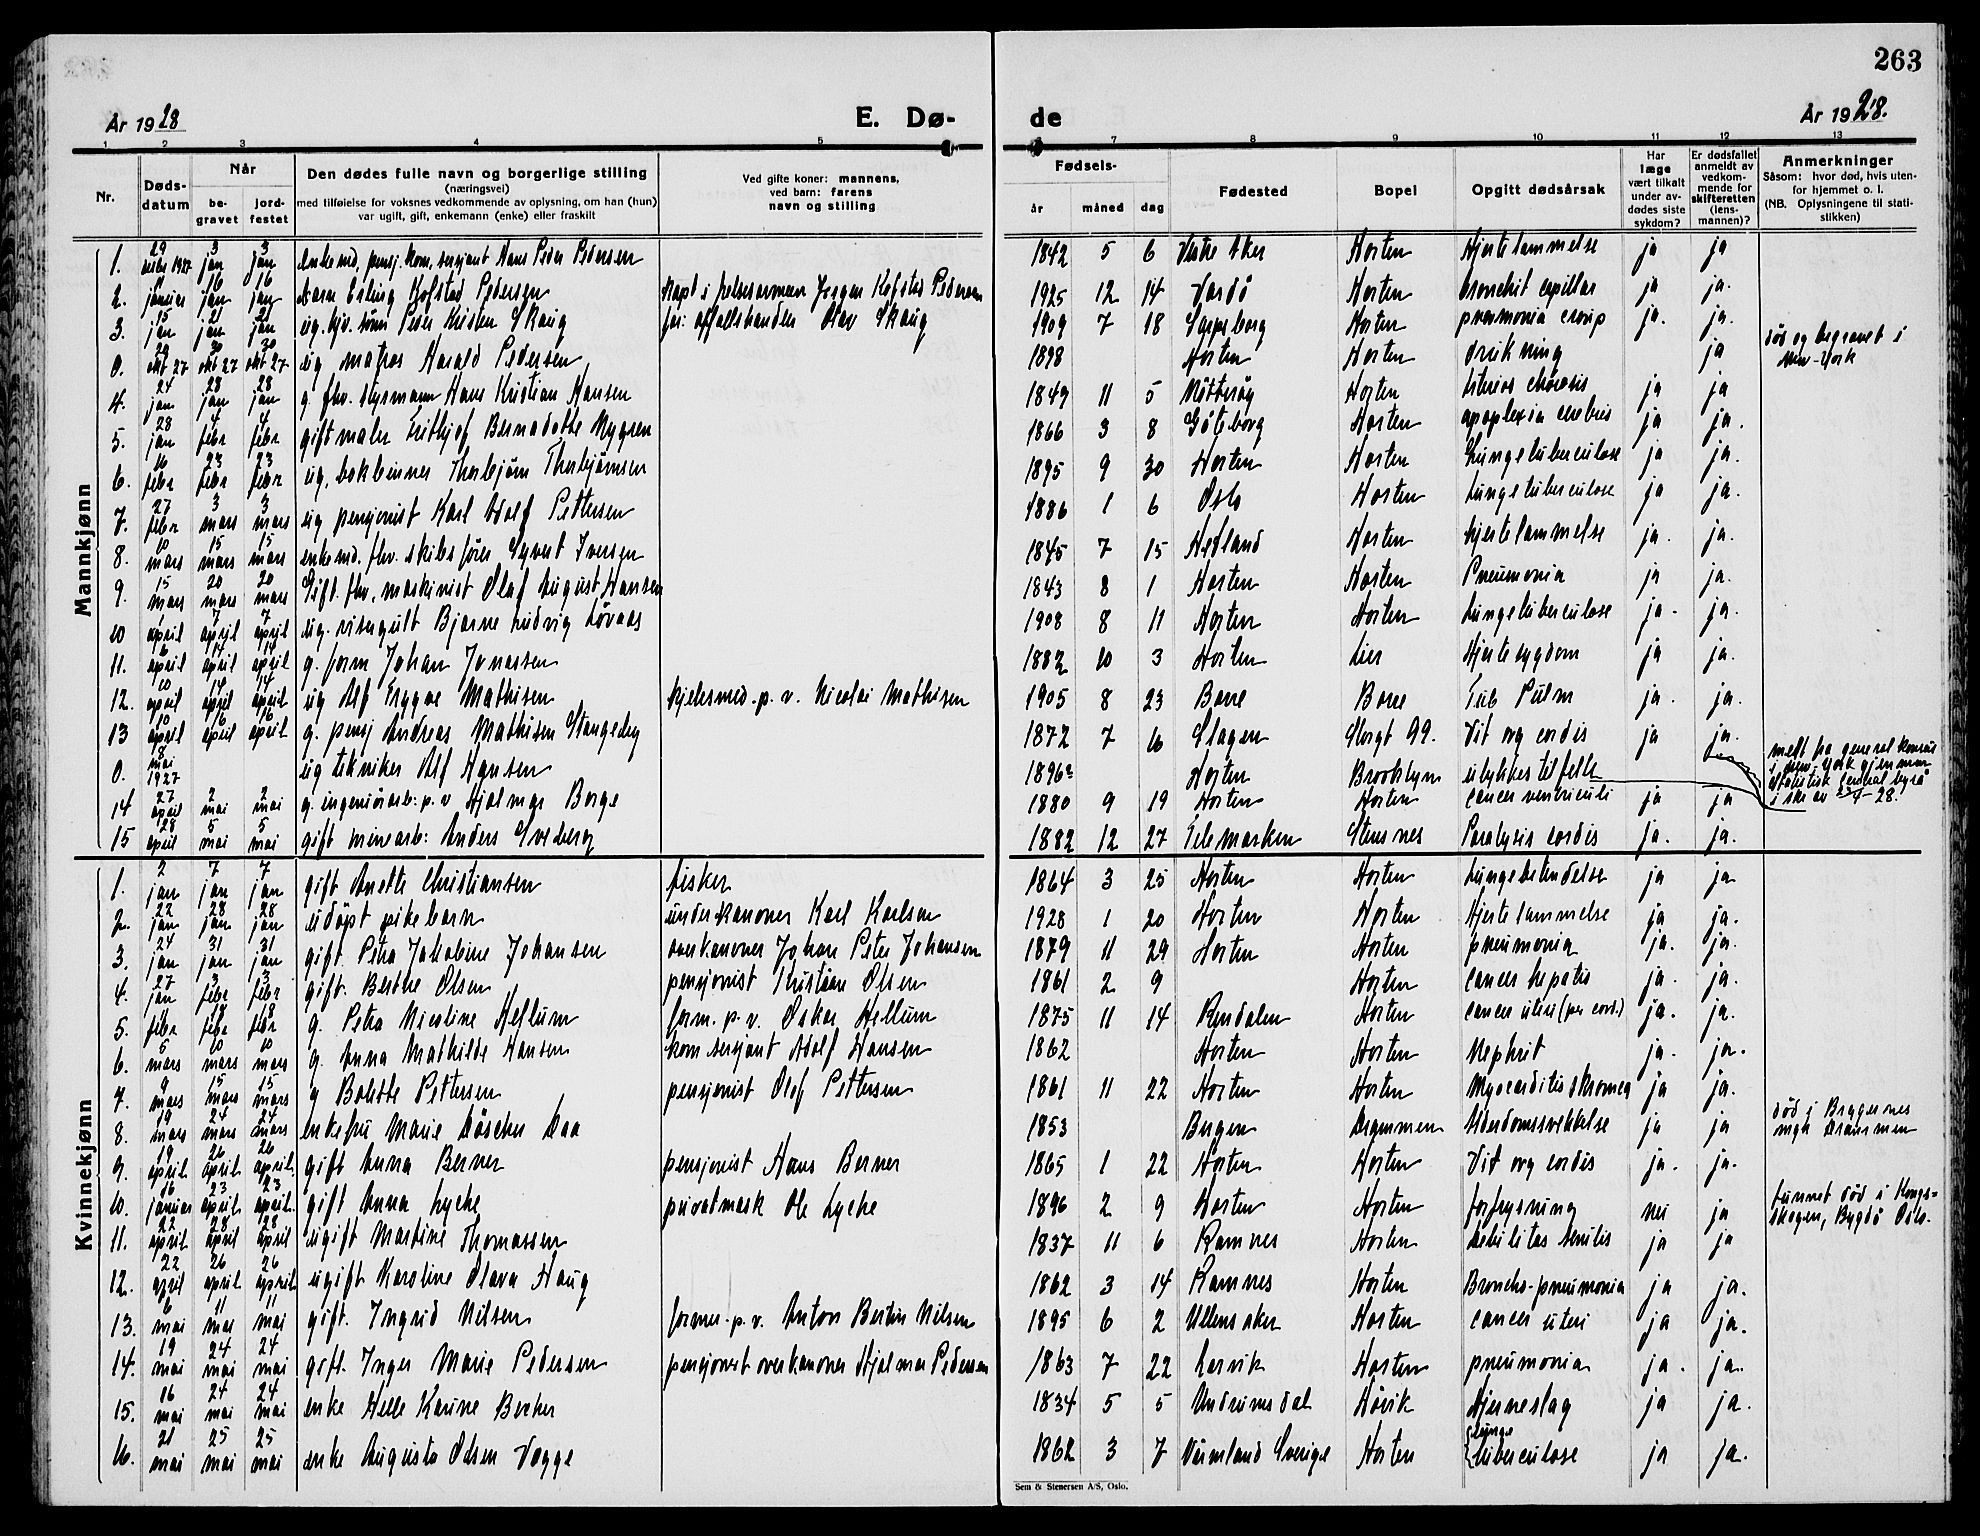 263
År 1928
E. Dø-
de
År 1928.
1 2 3 4 5 7 8 9 10 11 12 13
Nr.
Døds-
datum
Når
be-
gravet
jord-
festet
Den dødes fulle navn og borgerlige stilling
(næringsvei)
med tilføielse for voksnes vedkommende av oplysning, om han (hun)
var ugift, gift, enkemann (enke) eller fraskilt
Ved gifte koner: mannens,
ved barn: farens
navn og stilling
Fødsels-
år måned dag
Fødested
Bopel
Opgitt dødsårsak
Har
læge
vært tilkalt
under av-
dødes siste
sykdom?
Er dødsfallet
anmeldt av
vedkom-
mende for
skifteretten
(lens-
mannen)?
Anmerkninger
Såsom: hvor død, hvis uten-
for hjemmet o. l.
(NB. Oplysningene til stati-
stikken)
Mannkjønn
1. 29 desbr 1927 3 jan 3 jan enkemd, pensj. kom. sersjant Hans Peder Pedersen 1842 5 6 Vestre Aker Horten Hjertelammelse ja ja
2. januar 16 jan 16 jan Erling Hofstad Pedersen kapt i frelsesarmeen Jørgen Hofstad Pedersen 1925 12 14 Vardö Horten bronchit capillar ja ja.
3. 15 jan 21 jan 21 jan ug. Peder Kristen Skaug Olav Skaug 1909 7 18 Sarpsborg Horten pneumonia croup ja. ja.
0. 29 okt 27 30 okt 27 30 okt 27 ug matros Harald Pedersen 1898 Horten Horten drukning ja død og begravet i New-York
4. 24 jan 28 jan 28 jan g. fhv. styrmann Hans Kristian Hansen 1849 11 5 Nötteröy Horten ja ja
5. 28 jan 4 febr 4 febr gift maler Frithjof Bernadotte Nygren 1866 3 8 Göteborg Horten apoplexia cerebris ja ja.
6. 16 febr 23 febr 23 febr ug. bokbinner Thorbjörn Thorbjörnsen 1895 9 30 Horten Horten Lungetuberculose ja ja.
7. 27 febr 3 mars 3 mars ug pensjonist Karl Adolf Pettersen 1886 1 6 Oslo Horten Lungetuberculose ja ja.
8. 10 mars 15 mars 15 mars enkemd. fhv. skibsförer Syvert Iversen 1845 7 15 Hetland Horten hjertelammelse ja. ja.
9. 15 mars 20 mars 20 mars Gift. fhv. maskinist Olaf August Hansen 1843 8 1 Horten Horten Pneumonia ja ja.
10 april 7 april 7 april ug. visergutt Bjarne Ludvig Lövaas 1908 8 11 Horten Horten Lungetuberculose ja. ja.
11. 6 april 14 april 14 april g. form Johan Jonassen 1882 10 3 Horten Lier Hjertesygdom ja ja.
12. 10 april 14 april 14 april ug Alf Trygve Mathisen kjelesmed. p. v. Nicolai Mathisen 1905 8 23 Borre Borre Tub Pulm ja. ja.
13 10 april 16 april 16 april g. pensj Andreas Mathisen Stangeby 1872 7 16 Slagen Storgt 99. Vit org cordis ja ja.
0. 8 mai 1927 ug tekniker Alf Hansen 1896? Horten Brooklyn ulykkestilfelle meldt fra generalkonsul i New-York gjennem Statistisk Central byrå i skr av 23/4-28.
14 27 april 2 mai 2 mai g. ingeniörarb: p. v Hjalmar Borge 1880 9 19 Horten Horten cancer ventriculi ja ja
15 28 april 5 mai 5 mai gift minearb: Anders Sveberg 1882 12 27 Telemarken Stensnes Paralysis cordis ja. ja.
Kvinnekjønn
1. 2 jan 7 jan 7 jan gift Anette Christiansen fisker 1864 3 25 Horten Horten Lungebetendelse ja ja
2. 22 jan 28 jan 28 jan udöpt pikebarn underkanoner Karl Karlsen 1928 1 20 Horten Horten Hjertelammelse ja ja.
3. 24 jan 31 jan 31 jan gift. Petra Jakobine Johansen kanoner Johan Peter Johansen 1879 11 29 Horten Horten pneumonia ja. ja.
4. 27 jan 3 febr 3 febr gift. Berthe Olsen pensjonist Kristian Olsen 1861 2 9 Horten cancer hepatis ja. ja.
5. febr 18 febr 18 febr g. Petra Nicoline Hellum form. p. v. Oskar Hellum 1875 11 14 Rendalen Horten cancer uteri ja. ja.
6. 5 mars 10 mars 10 mars g. Anna Mathilde Hansen kom sersjant Adolf Hansen 1862 Horten Horten Nephrit ja. ja.
7. 9 mars 15 mars 15 mars g Bolette Pettersen pensjonist Olof Pettersen 1861 11 22 Horten Horten Myocarditis ja ja.
8. 19 mars 24 mars 24 mars enkefru Marie Löscher Daa 1853 Bergen Drammen Alderdomssvekkelse ja ja død i Bragernes mgh Drammen
9. 19 april 26 april 26 april gift Anna Berner pensjonist Hans Berner 1865 1 22 Horten Horten Vit org cordis ja. ja.
10. 16 januar 23 april 23 april. gift Anna Lycke privatmask Ole Lycke 1896 2 9 Horten Horten forfrysning nei ja funnet død i Kongs- skogen, Bygdö Oslo.
11. 22 april 28 april 28 april ugift Martine Thomassen 1837 11 6 Ramnes Horten Debilitas senilis ja ja
12. 22 april 26 april 26 april ugift Karoline Olava Haug 1862 3 14 Ramnes Horten Broncho-pneumonia ja ja.
13. 6 mai 11 mai 11 mai gift. Ingrid Nilsen former. p. v. Anton Bertin Nilsen 1895 6 2 Ullensaker Horten cancer uteri ja ja.
14. 19 mai 24 mai 24 mai gift. Inger Marie Pedersen pensjonert overkanoner Hjalmar Pedersen 1863 7 22 Larvik Horten pneumonia ja. ja.
15. 16 mai 24 mai 24 mai enke Helle Karine Becher 1834 5 5 Undrumsdal Hövik Hjerneslag ja ja.
16. 21 mai 25 mai 25 mai enke Augusta Olsen Vegge 1862 3 7 Värmland Sverige Horten lunge tuberculose ja ja.
Sem & Stenersen A/S, Oslo.